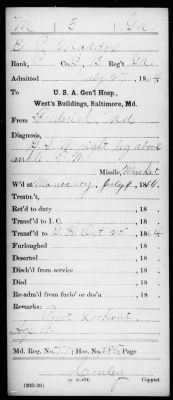 M 3 Ga
Rank, P Co. B, 13 Reg't Ga
Admitted July 27, 1864
To U. S. A. Gen'l Hosp.
West's Buildings, Baltimore, Md.
From Frederick Md
Diagnosis,
G.S.W. right leg above
ankle
Missile, Musket
W'd at Monocacy, July 9, 1864.
Treatm't,
Ret'd to duty , 18 .
Transf'd to I. C. , 18 .
Transf'd to G.H. Oct. 25 , 1864
Furloughed , 18 .
Deserted , 18 .
Disch'd from service , 18 .
Died , 18 .
Re-adm'd from furlo' or des'n , 18 .
Remarks:
Point Lookout.
Age
Md. Reg. No. ; Hos. No. ; Page
Copyist.